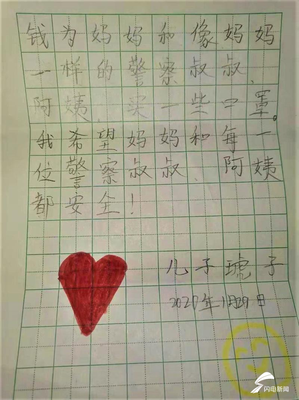 钱为妈妈和像妈妈
一样的警察叔叔、
阿姨买一些口罩。
我希望妈妈和每一
位警察叔叔、阿姨
都安全！
儿子琥子
月29日
闪电新闻